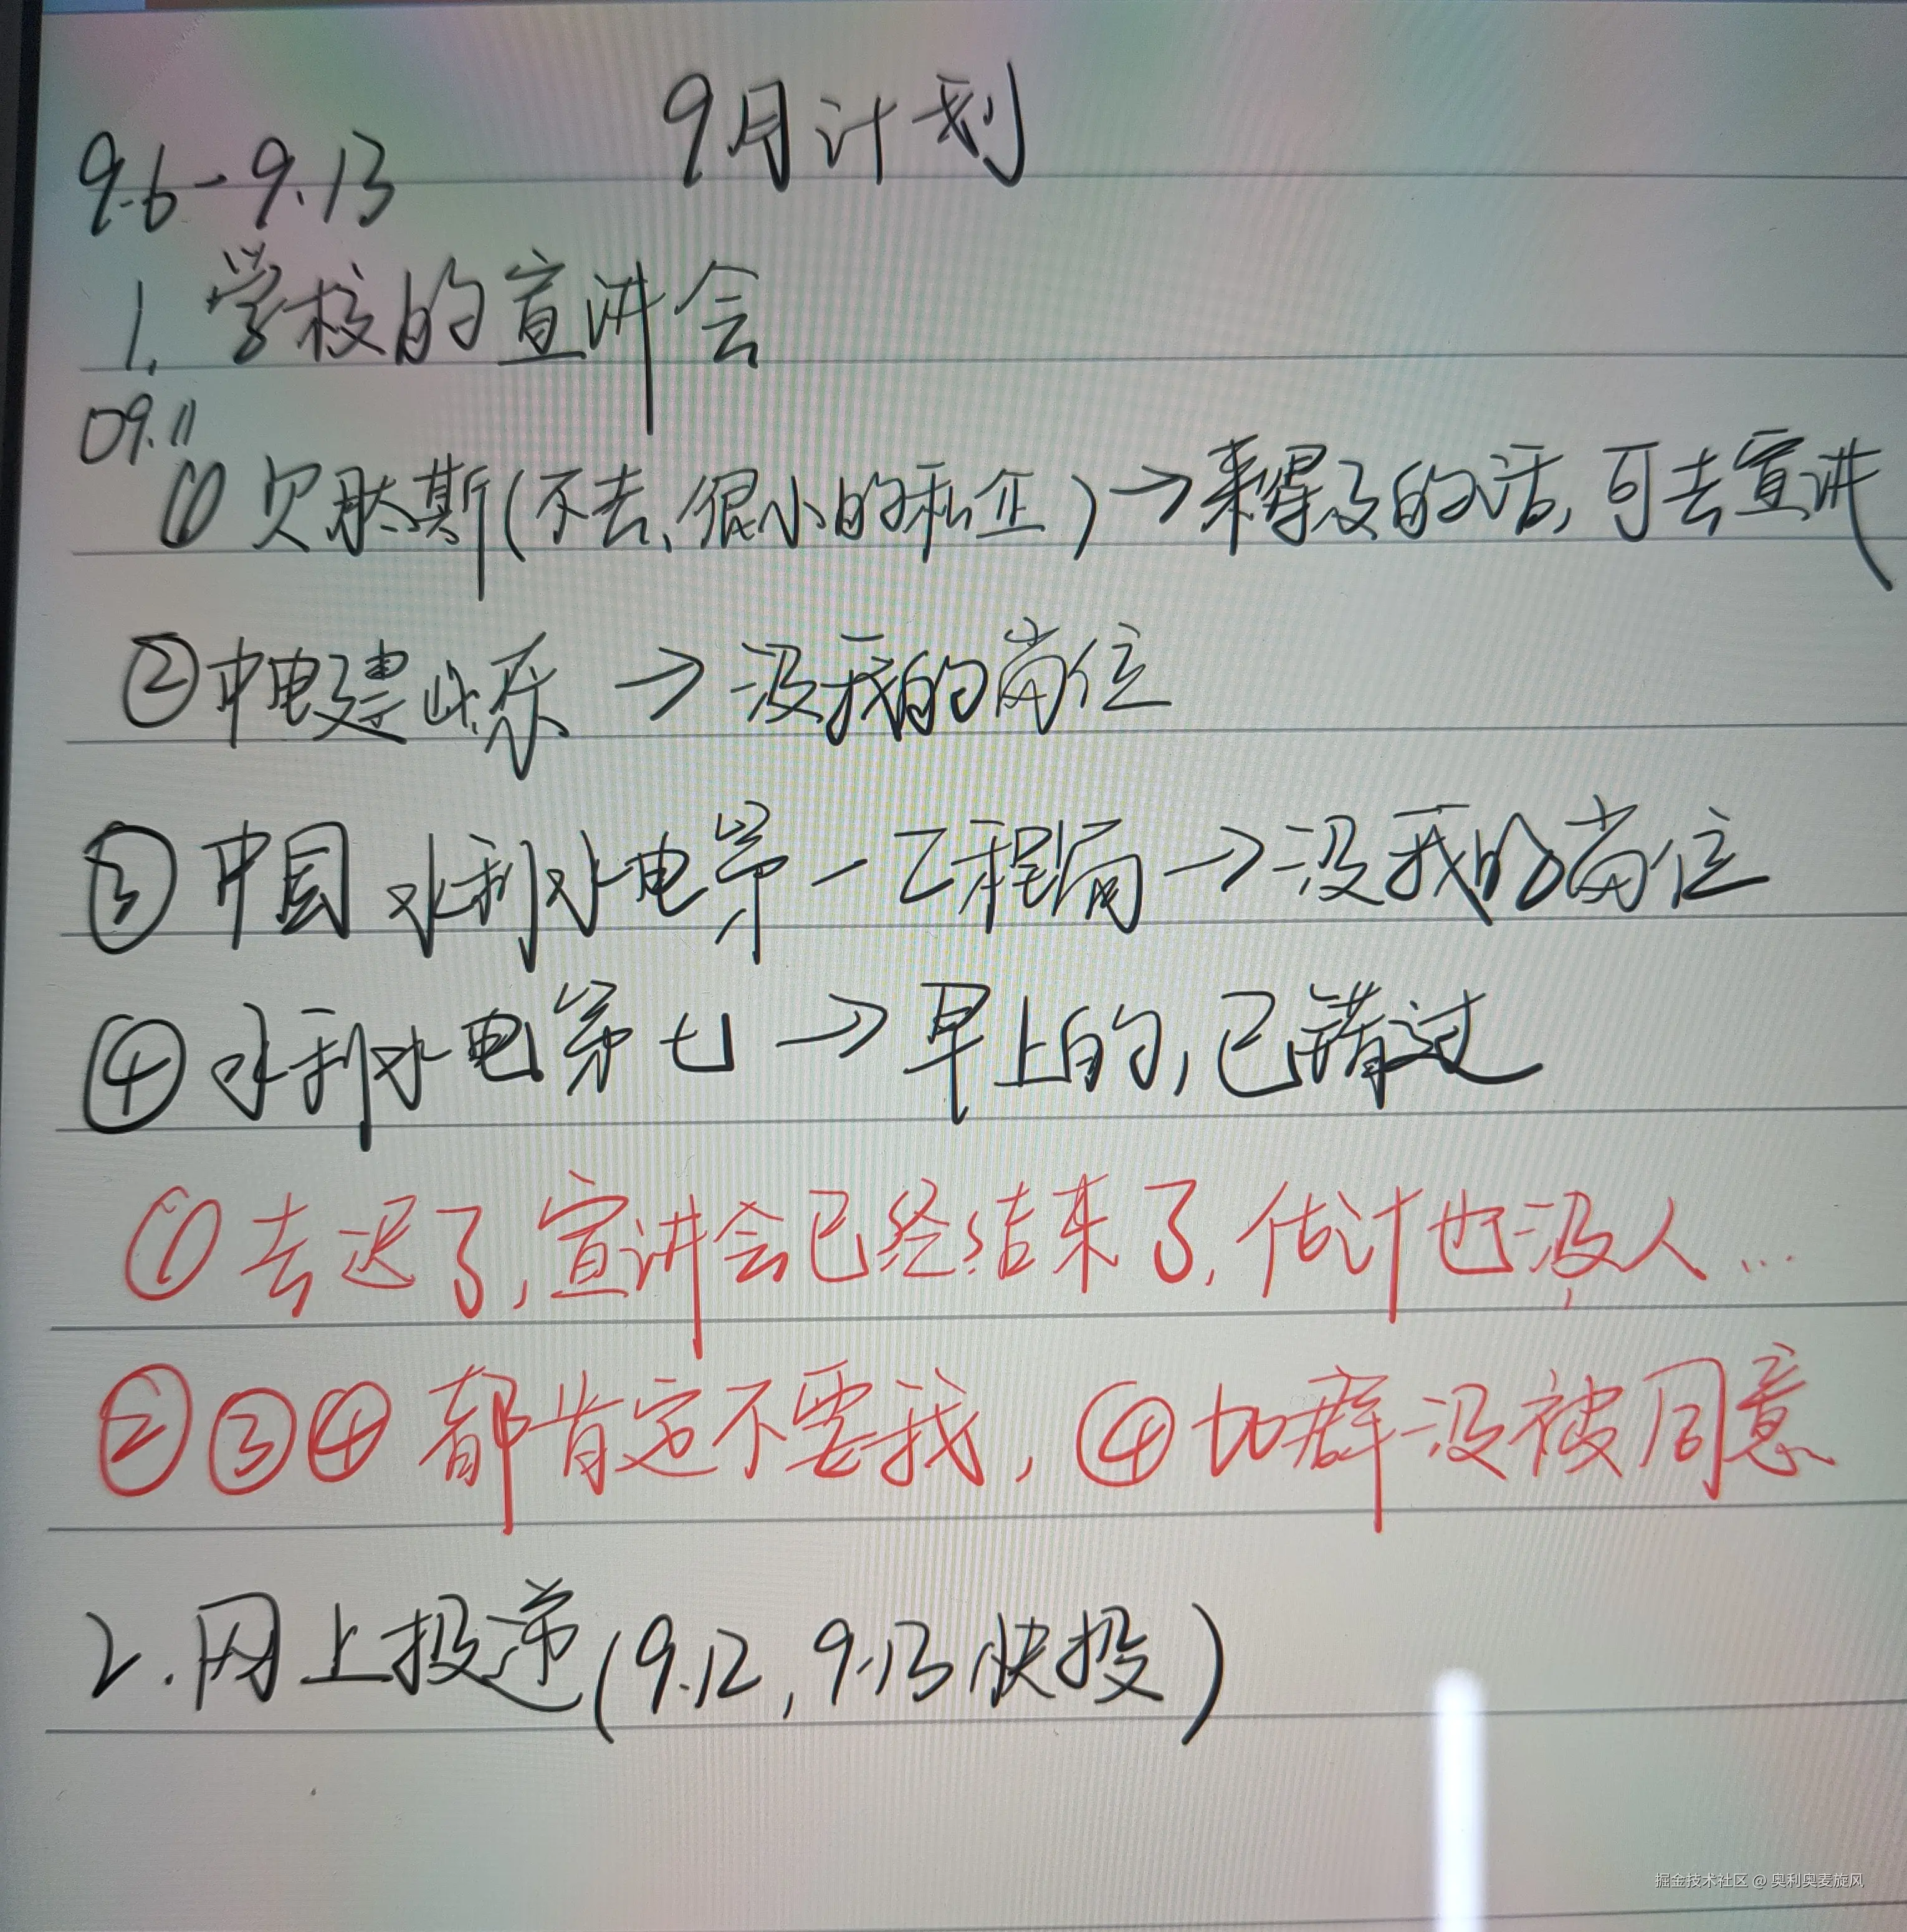 9月计划
9.6-9.13
1.学校的宣讲会
09.11
①欠肽斯(不去、很小的私企)→来得及的话,可去宣讲
②中电建北京→没我的岗位
③中国水利水电第一工程局→没我的岗位
④水利水电第七→早上的,已错过
①去迟了,宣讲会已经结束了,估计也没人...
②③④都肯定不要我,④加群没被同意
2.网上投递(9.12,9.13快投)
掘金技术社区 @ 奥利奥麦旋风